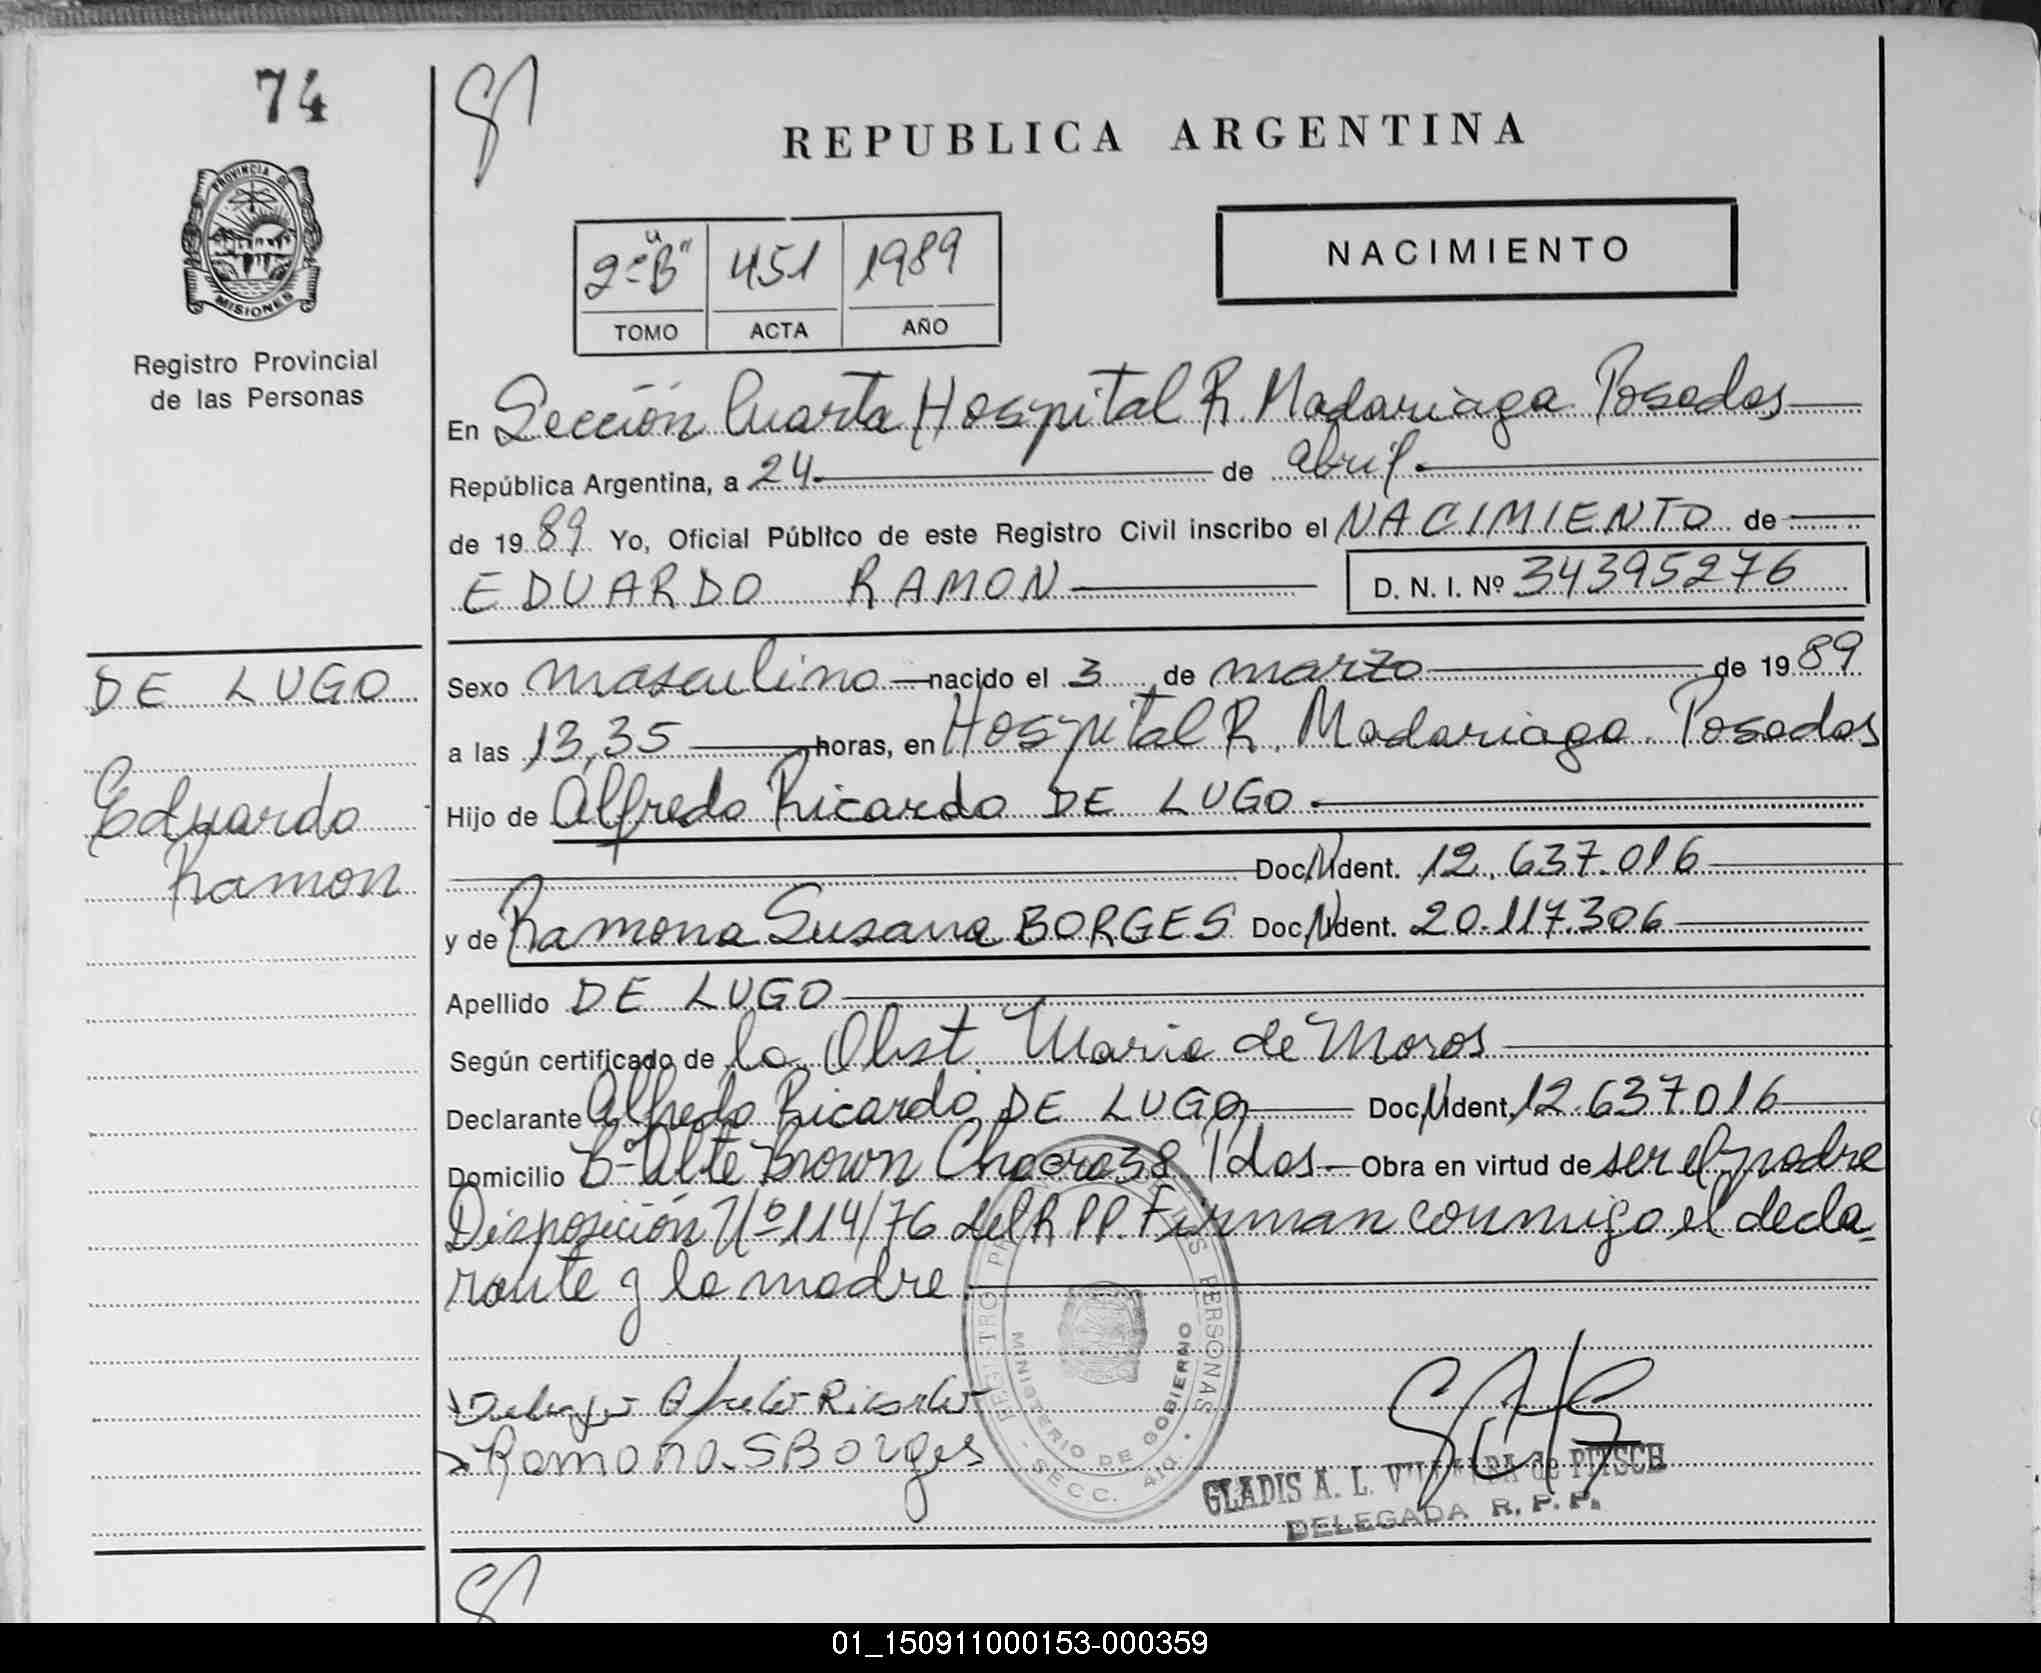 74
PROVINCIA DE
MISIONES
Registro Provincial
de las Personas
REPUBLICA ARGENTINA
2º "B" 451 1989
TOMO ACTA AÑO
NACIMIENTO
En Sección Cuarta Hospital R. Madariaga Posadas
República Argentina, a 24 de abril
de 1989 Yo, Oficial Público de este Registro Civil inscribo el NACIMIENTO de
EDUARDO RAMON D. N. I. Nº 34395276
DE LUGO
Eduardo
Ramon
Sexo masculino nacido el 3 de marzo de 1989
a las 13,35 horas, en Hospital R. Madariaga. Posadas
Hijo de Alfredo Ricardo DE LUGO
Doc. Ident. 12.637.016
y de Ramona Susana BORGES Doc. Ident. 20.117.306
Apellido DE LUGO
Según certificado de la Obst. Maria de Moros
Declarante Alfredo Ricardo DE LUGO Doc. Ident. 12.637.016
Domicilio Bº Alte Brown Chacra 38 Pdas Obra en virtud de ser el padre
Disposición Nº 114/76 del R.P.P. Firman conmigo el decla-
rante y la madre.
Alfredo Ricardo
Ramona S Borges
REGISTRO PERSONAS
MINISTERIO DE GOBIERNO
SECC. 4ta.
GLADIS A. L. de PITSCH
DELEGADA R. P. P.
01_150911000153-000359